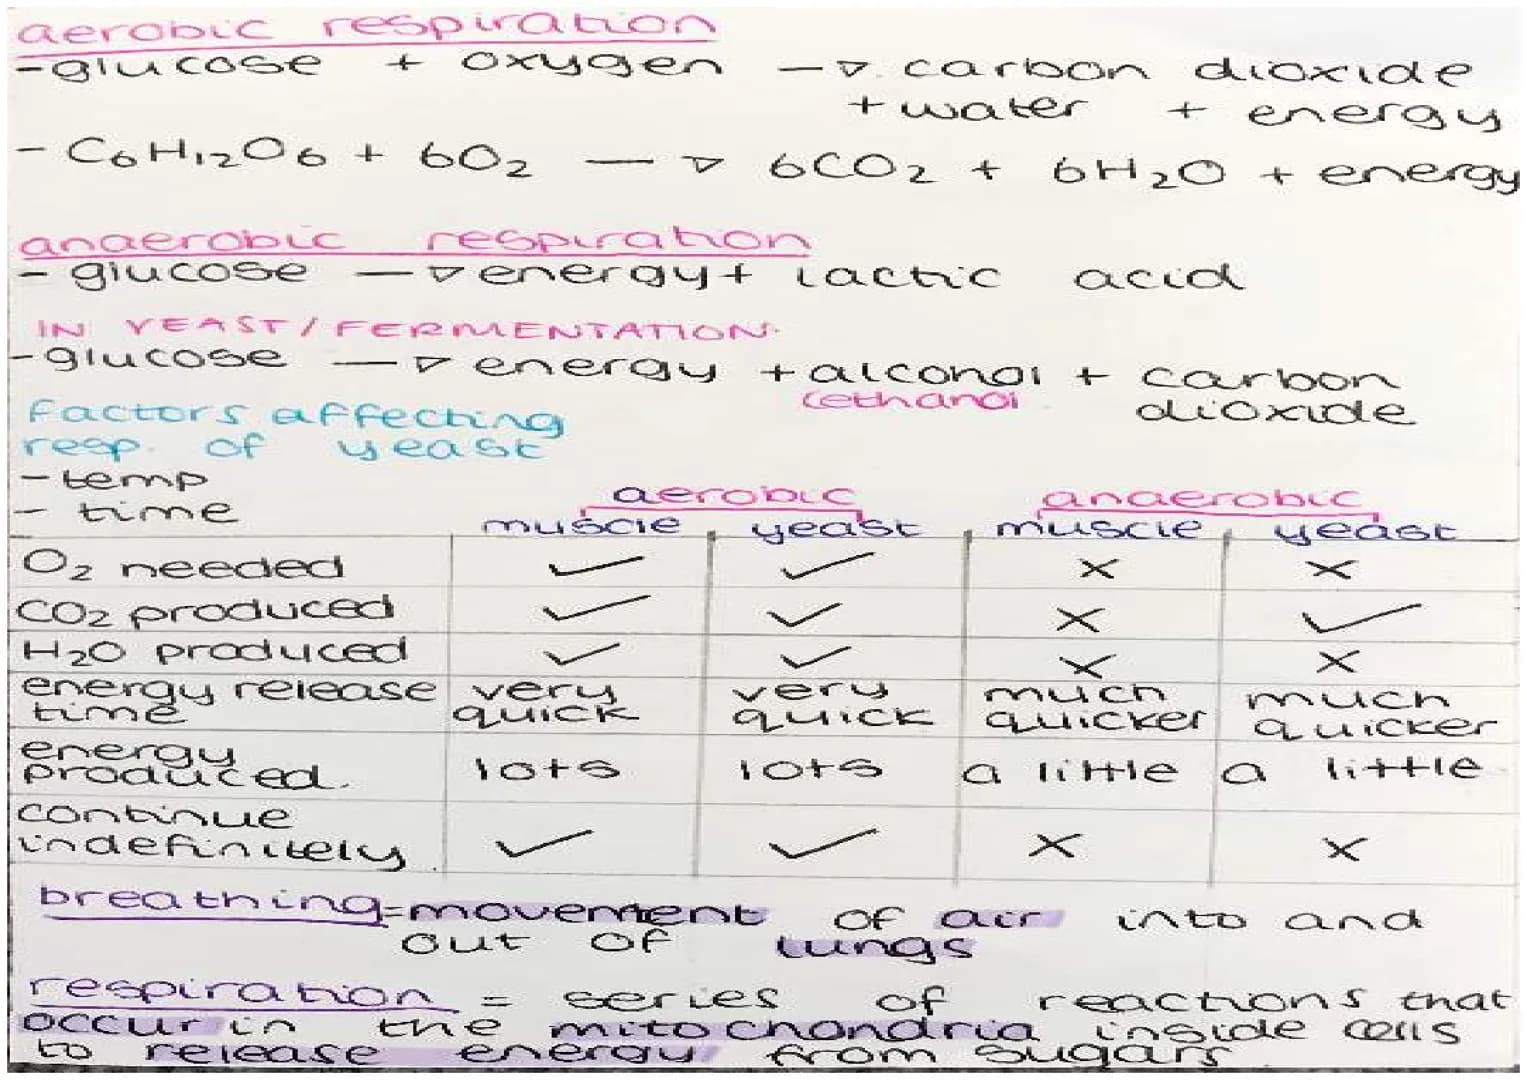 aerobic respiration
-glucose + oxygen → carbon dioxide
+ water + energy
- C6H12O6 + 6O2 → 6CO2 + 6H2O + energy
anaerobic respiration
- glucose → energy + lactic acid
IN YEAST/FERMENTATION.
-glucose → energy + alcohol + carbon
(ethanol dioxide
factors affecting
resp. of yeast
- temp
- time
aerobic anaerobic
muscle yeast muscle yeast
O2 needed ✓ ✓ × ×
CO2 produced ✓ ✓ × ✓
H2O produced ✓ ✓ × ×
energy release very very much much
time quick quick quicker quicker
energy
produced. lots lots a little a little
continue
indefinitely. ✓ ✓ × ×
breathing=movement of air into and
out of lungs
respiration = series of reactions that
occur in the mitochondria inside cells
to release energy from sugars